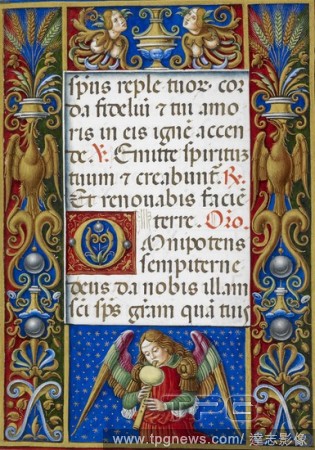 sp̄us reple tuor. cor
da fideliū & tui amo
ris in eis ignē accen
de. V. Emitte spiritū
tuum & creabunt̄. R.
Et renovabis faciē
terre. Or̄o.
Omnipotens
sempiterne
deus da nobis illam
sci sp̄s grām quā tuis
TPG
www.tpgnews.com/達志影像